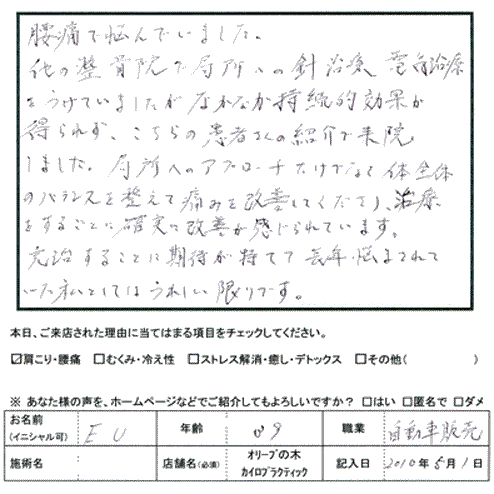 腰痛で悩んでいました。
他の整骨院で局所への針治療、電気治療
をうけていましたがなかなか持続的効果が
得られず、こちらの患者さんの紹介で来院
しました。局所へのアプローチだけでなく体全体
のバランスを整えて痛みを改善してくださり、治療
をするごとに確実に改善が感じられています。
完治することに期待が持てて長年悩まされて
いた私としてはうれしい限りです。
本日、ご来店された理由に当てはまる項目をチェックしてください。
☑肩こり・腰痛 □むくみ・冷え性 □ストレス解消・癒し・デトックス □その他( )
※ あなた様の声を、ホームページなどでご紹介してもよろしいですか? □はい □匿名で □ダメ
お名前 (イニシャル可) E U 年齢 39 職業 自動車販売
施術名 店舗名(必須) オリーブの木 カイロプラクティック 記入日 2010年5月1日